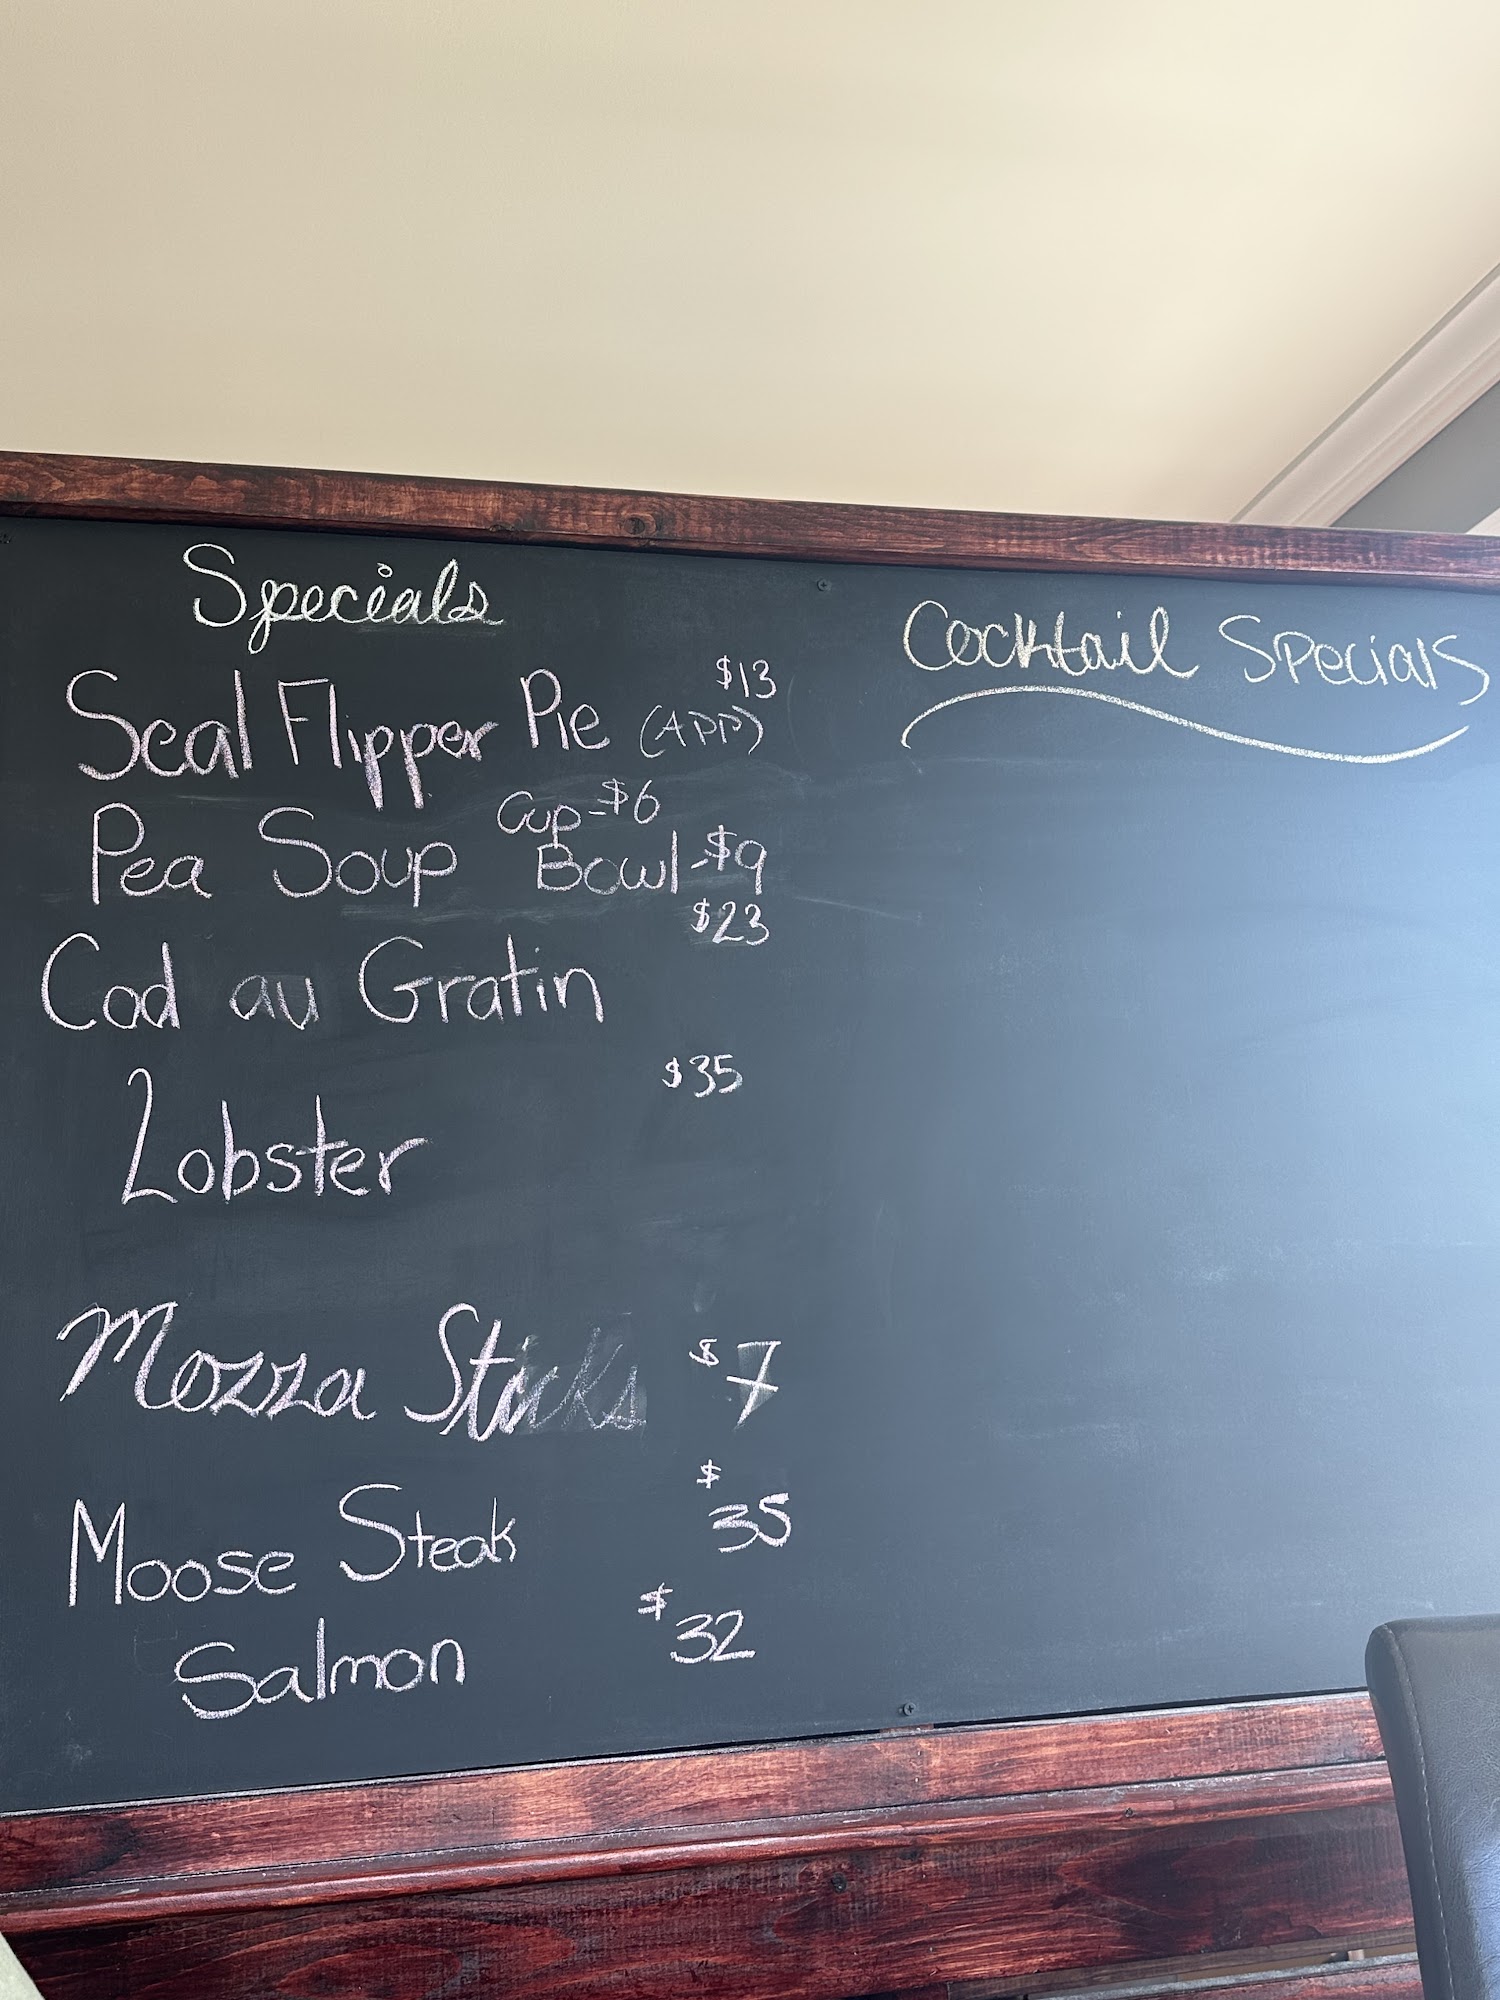 Specials
Seal Flipper Pie (APP) $13
Pea Soup Cup-$6
Bowl-$9
Cod au Gratin $23
Lobster $35
Mozza Sticks $7
Moose Steak $35
Salmon $32
Cocktail Specials